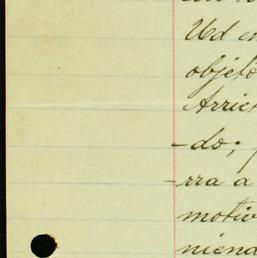 Ud en
objeto
Arrie
-do; p
-rra a
motiv
niend